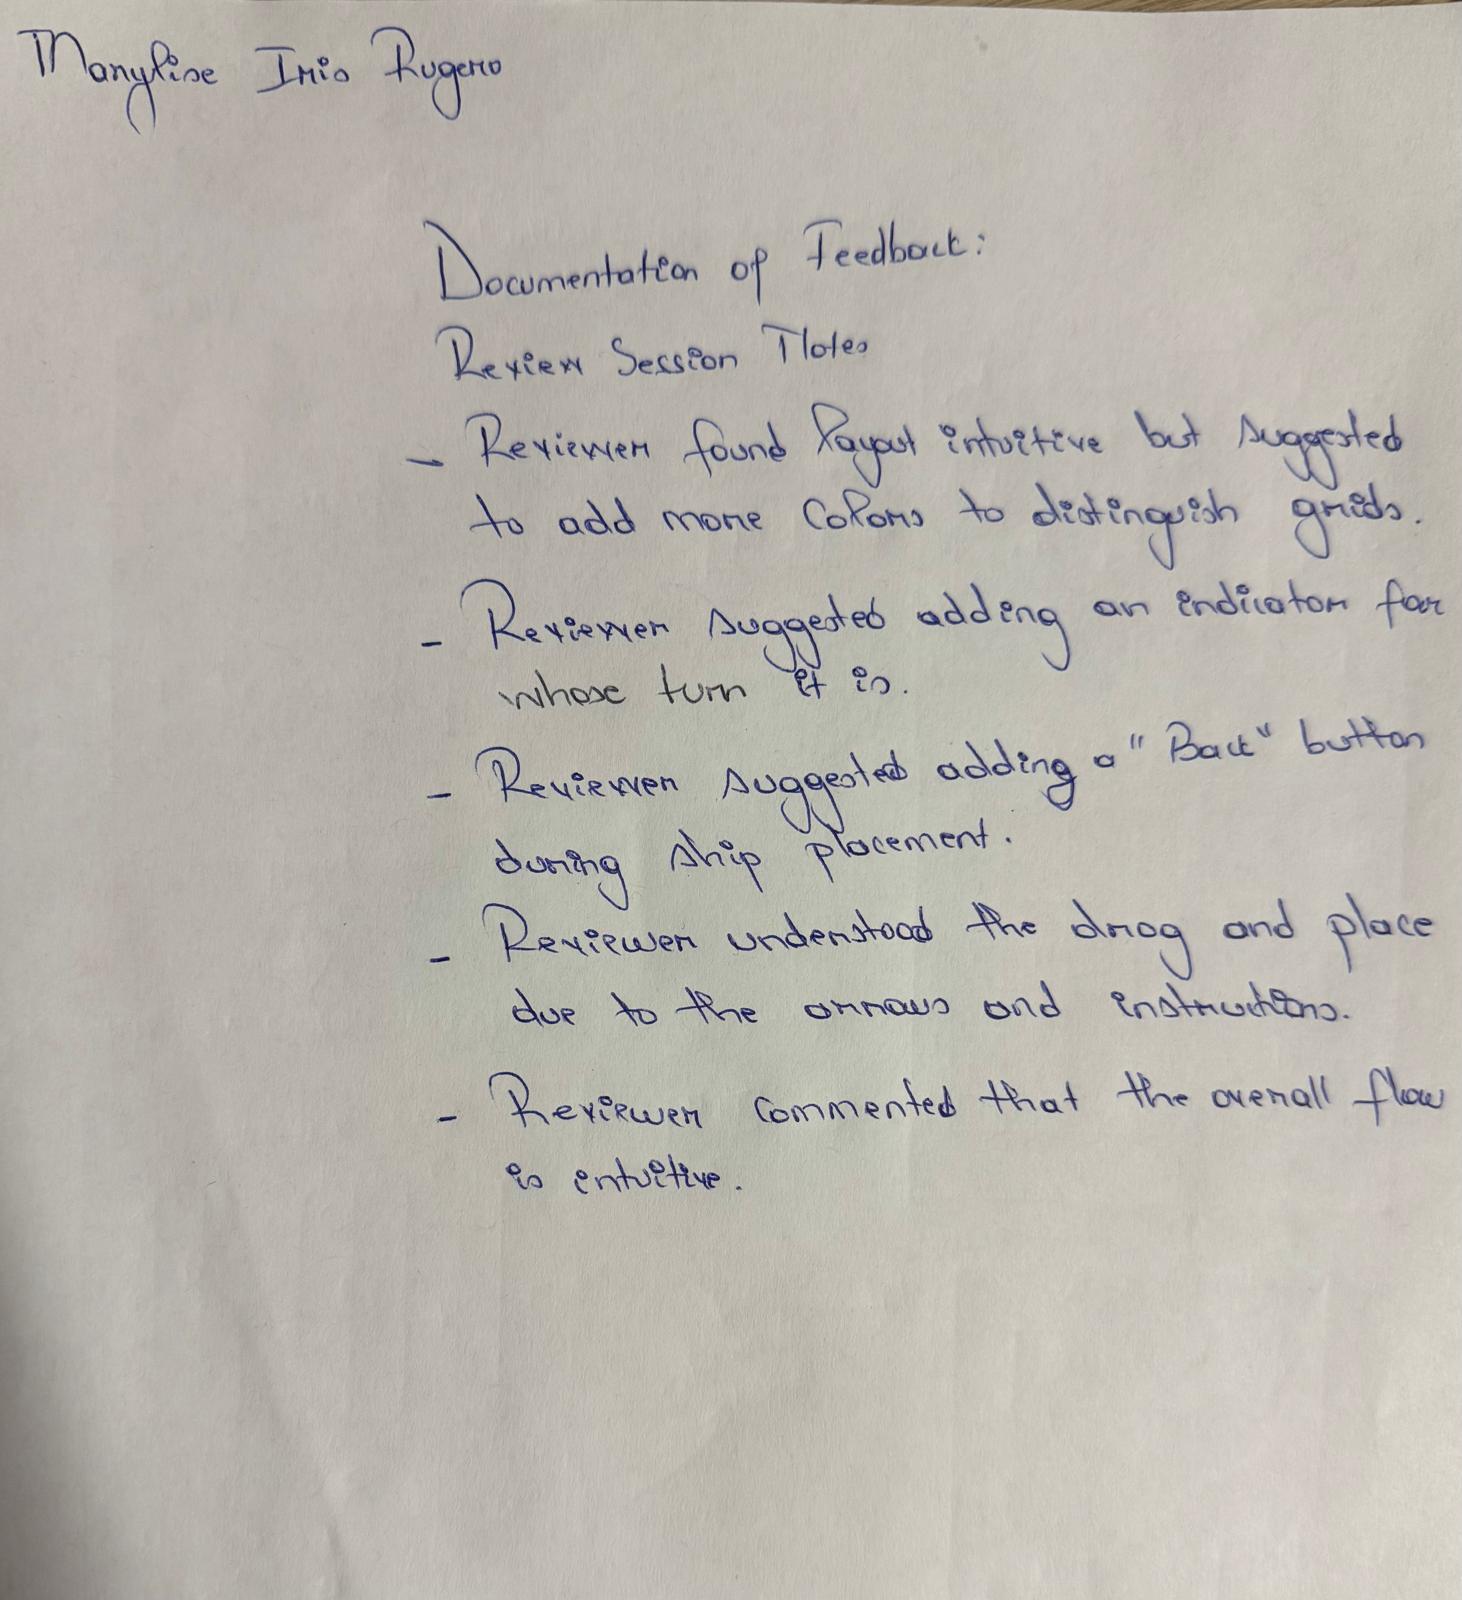 Marylise Iris Rugero
Documentation of Feedback:
Review Session Notes
- Reviewer found layout intuitive but suggested
to add more colors to distinguish grids.
- Reviewer suggested adding an indicator for
whose turn it is.
- Reviewer suggested adding a "Back" button
during ship placement.
- Reviewer understood the drag and place
due to the arrows and instructions.
- Reviewer commented that the overall flow
is intuitive.